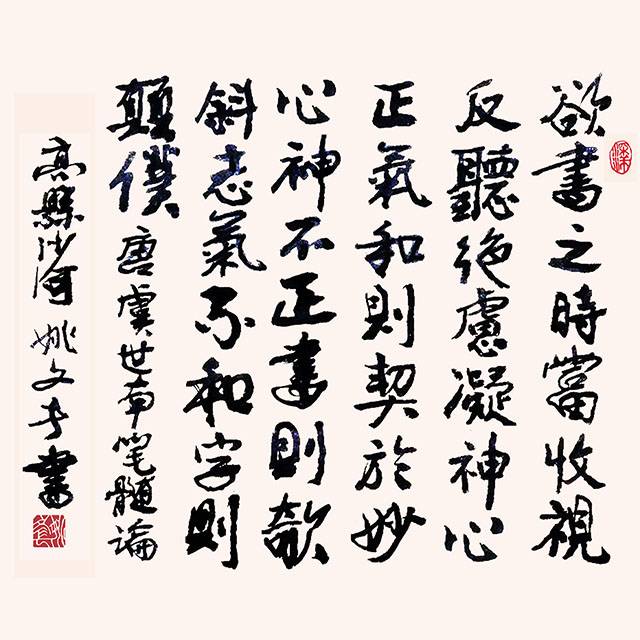 欲書之時當收視
反聽絕慮凝神心
正氣和則契於妙
心神不正書則欹
斜志氣不和字則
顛僕唐虞世南笔髓論
高縣沙河姚文才書